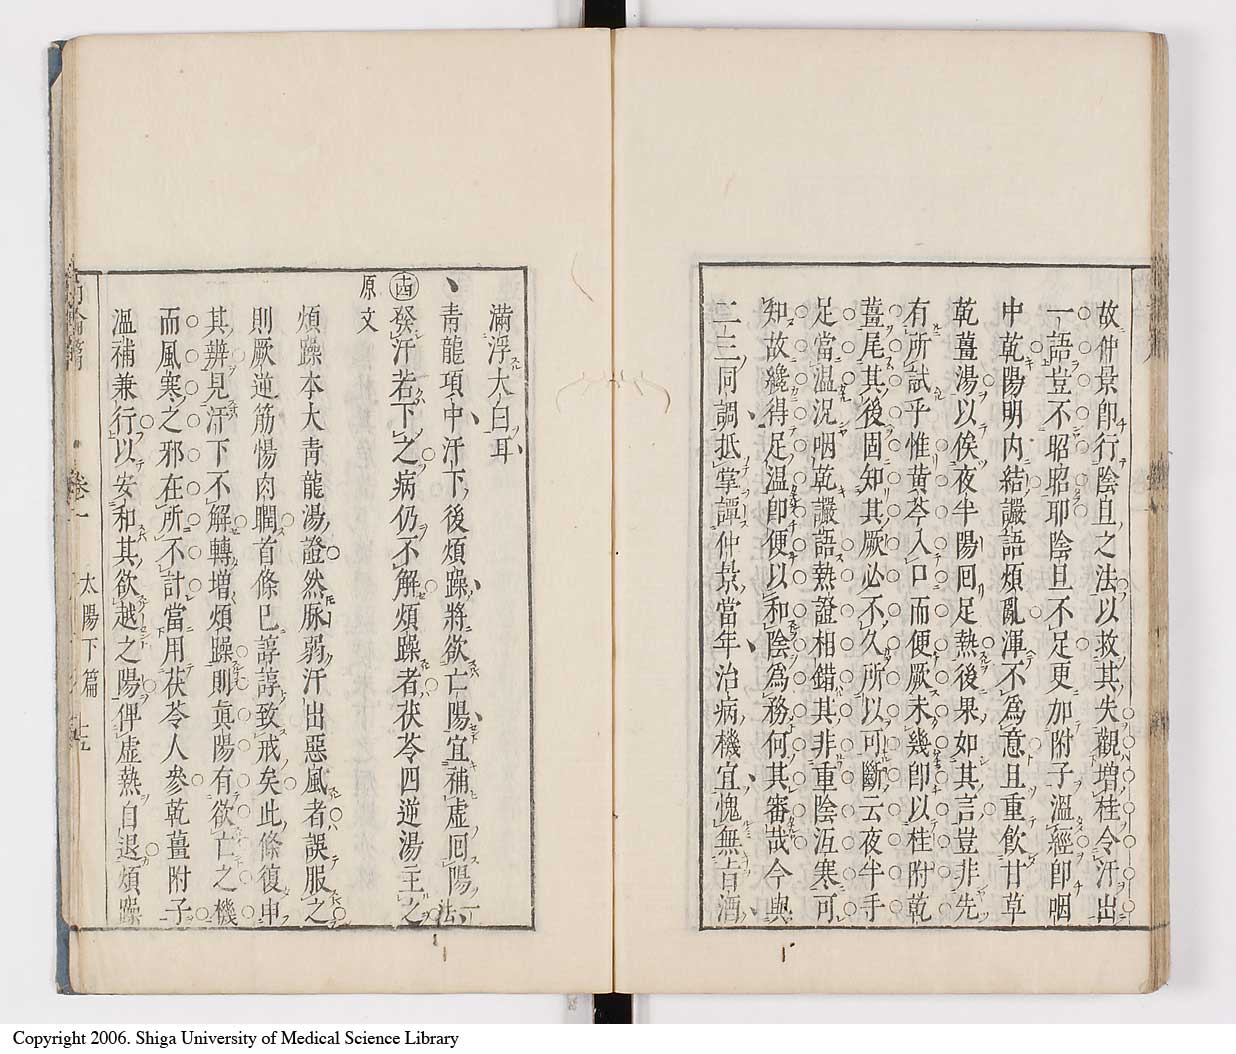 故仲景卽行陰且之法以救其失觀增桂令汗出
一語豈不昭昭耶陰旦不足更加附子溫經卽咽
中乾陽明內結讝語煩亂渾不爲意且重飮甘草
乾薑湯以俟夜半陽囘足熱後果如其言豈非先
有所試乎惟黃芩入口而便厥未幾卽以桂附乾
薑尾其後固知其厥必不久所以可斷云夜半手
足當温況咽乾讝語熱證相錯其非重陰沍寒可
知故纔得足温卽便以和陰爲務何其審哉今與
二三同調抵掌譚仲景當年治病機宜愧無旨酒
滿浮大白耳
青龍項中汗下後煩躁將欲亡陽宜補虛囘陽一法
十四 發汗若下之病仍不解煩躁者茯苓四逆湯主之
原文
煩躁本大青龍湯證然脉弱汗出惡風者誤服之
則厥逆筋惕肉瞤首條已諄諄致戒矣此條復申
其辨見汗下不解轉增煩躁則眞陽有欲亡之機
而風寒之邪在所不計當用茯苓人參乾薑附子
溫補兼行以安和其欲越之陽俾虛熱自退煩躁
卷一
太陽下篇
Copyright 2006. Shiga University of Medical Science Library